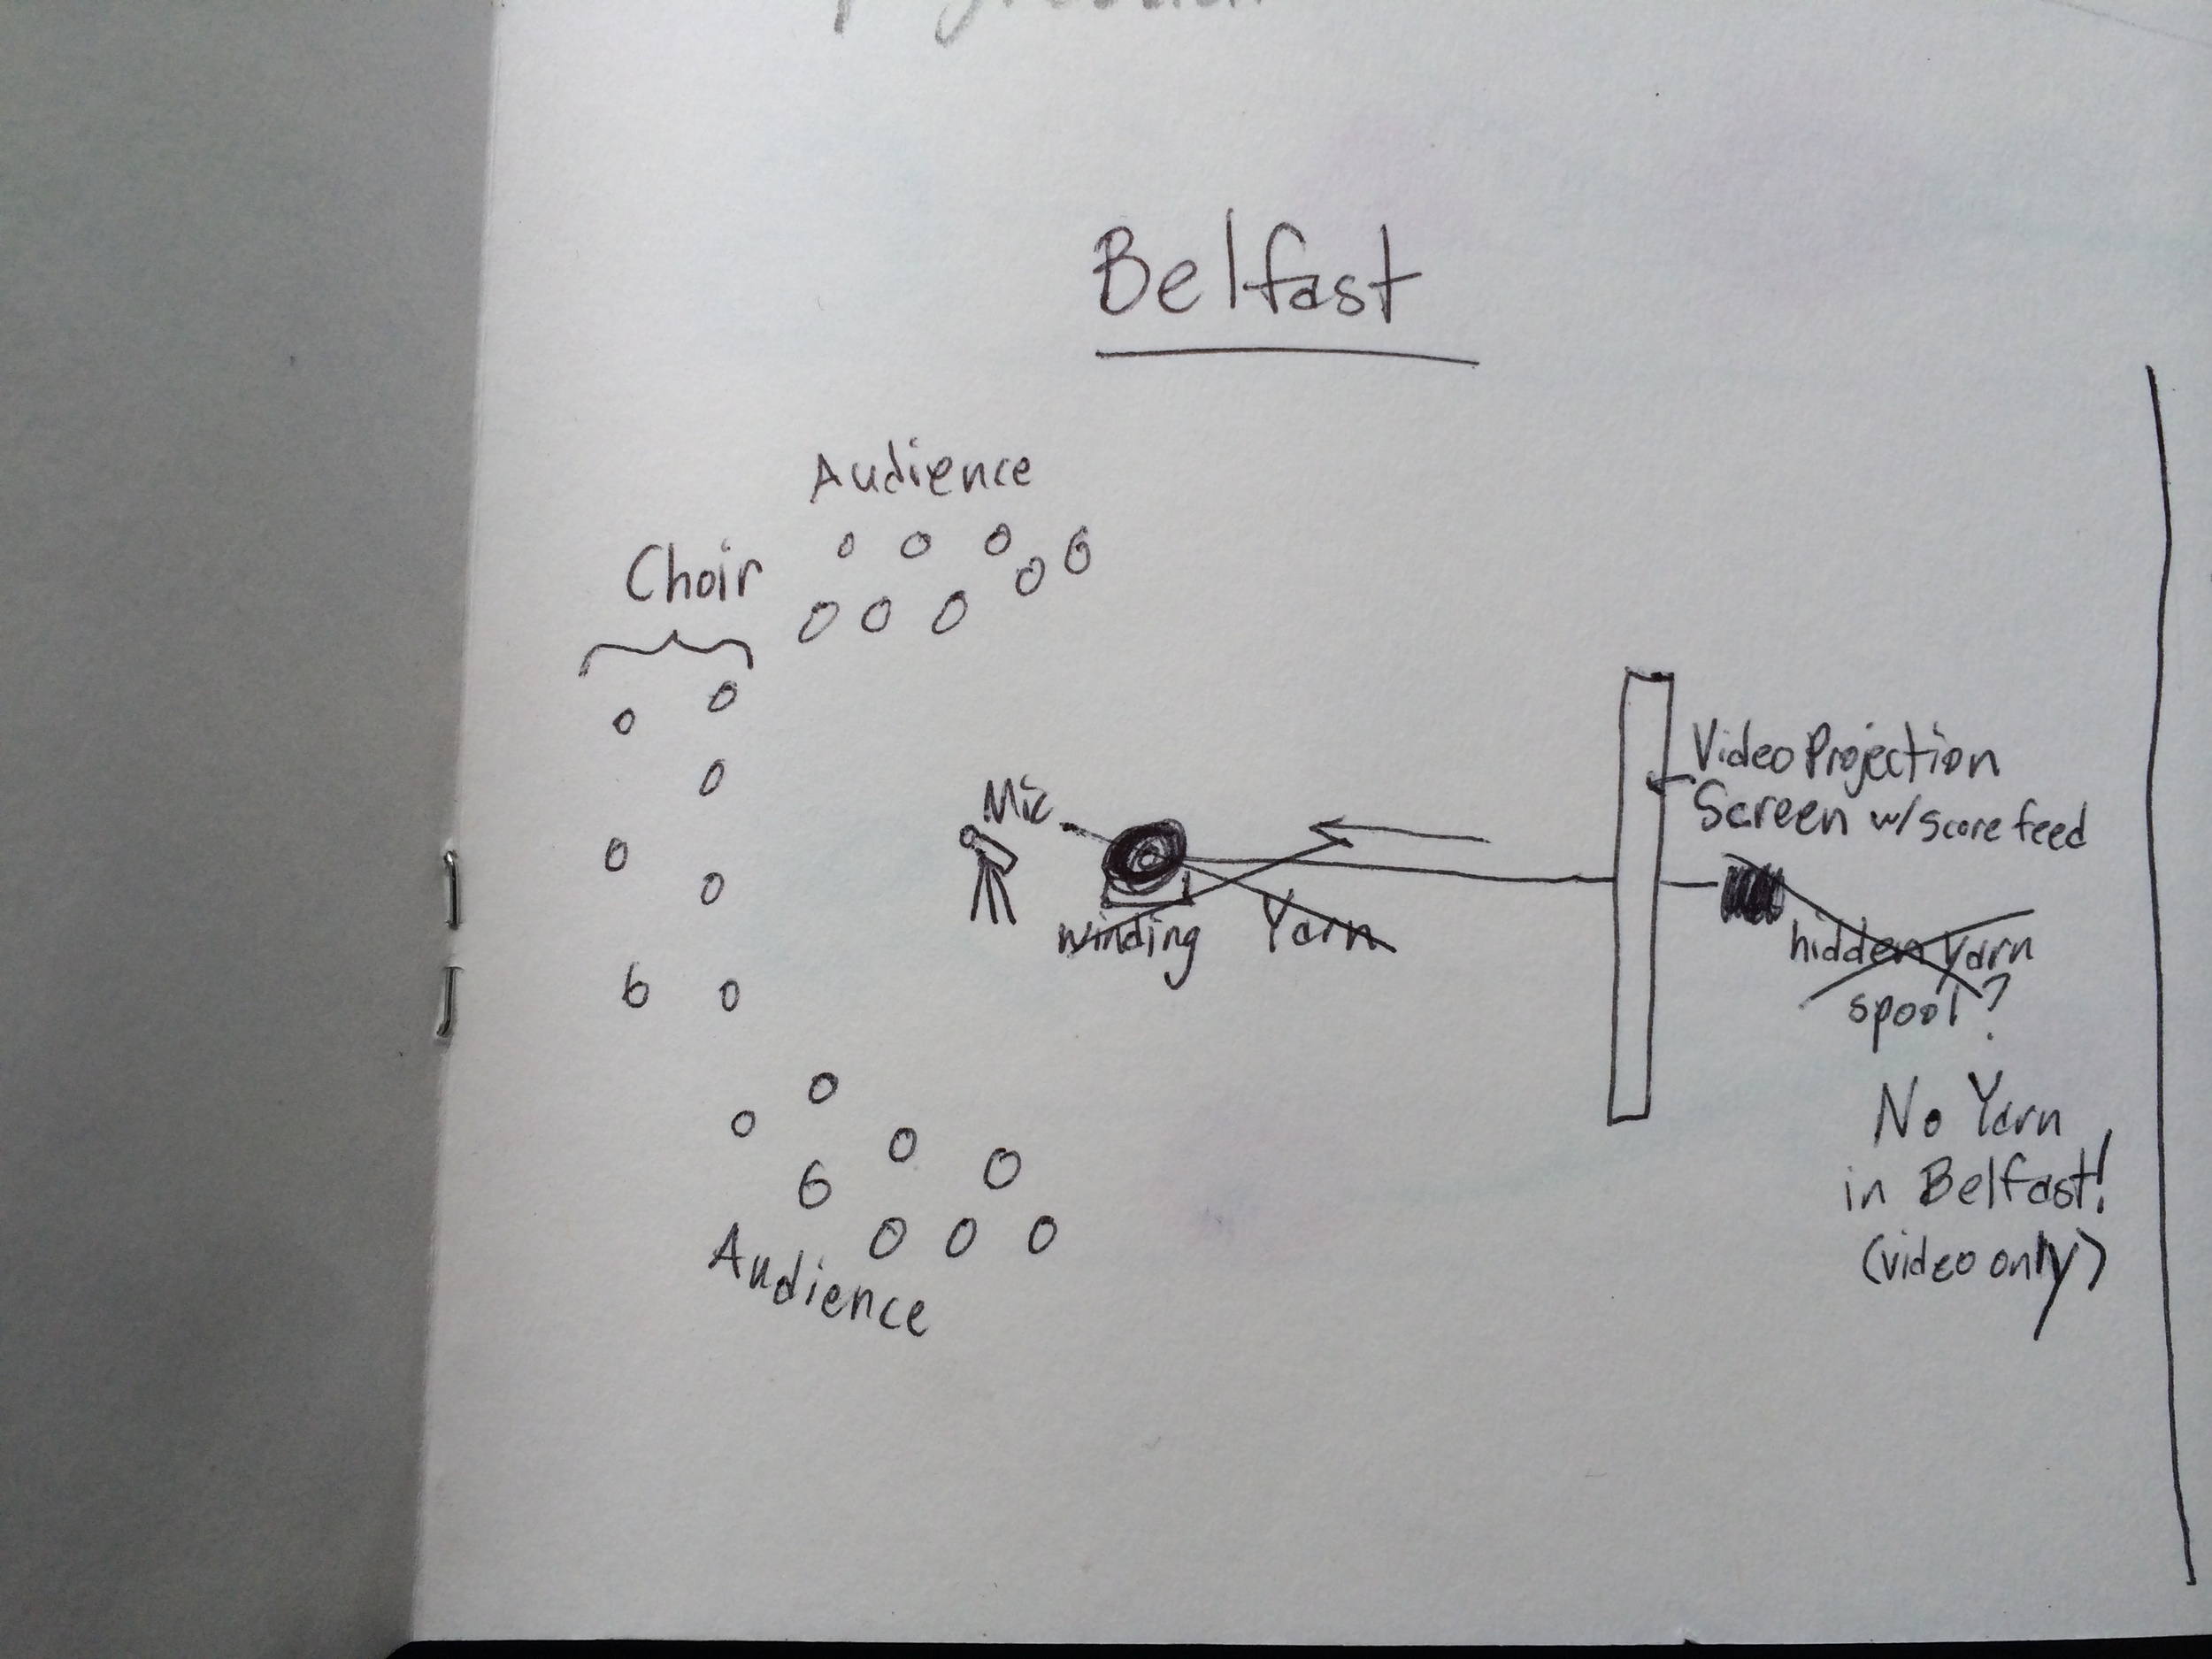 Belfast
Audience
Choir
Mic
Video Projection
Screen w/ score feed
winding Yarn
hidden yarn
spool?
No Yarn
in Belfast!
(video only)
Audience